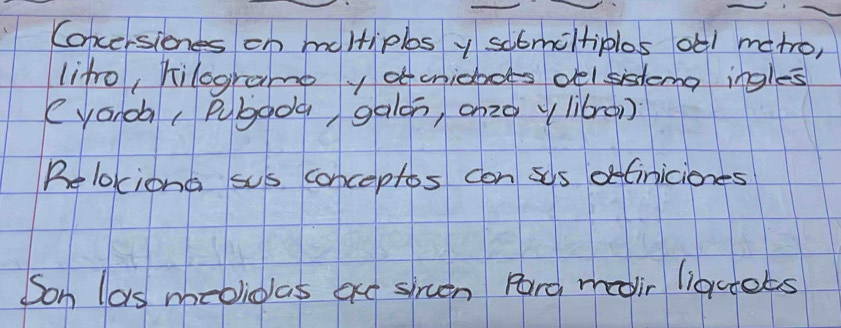 Conversiones en multiplos y submúltiplos del metro,
litro, kilogramo y de unidades del sistema inglés
(yarda, Pulgada, galón, onza y libra):
Relaciona sus conceptos con sus definiciones
Son las medidas que sirven Para medir líquidos